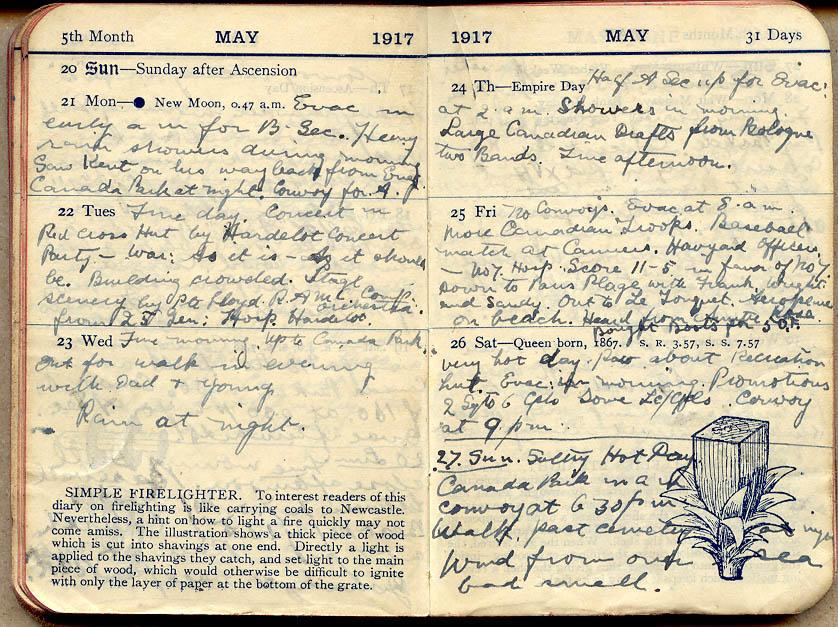 5th Month MAY 1917
20 Sun—Sunday after Ascension
21 Mon—● New Moon, 0.47 a.m. Evac in
early a m for B. Sec. Heavy
rain showers during morning
Saw Kent on his way back from Evac
Canada Park at night. Convoy for A.
22 Tues Fine day. Concert in
Red Cross Hut by Hardelot Concert
Party - War: As it is - As it should
be. Building crowded. Stage
scenery by Pte Lloyd R.A.M.C. Comp.
Orchestra
from 25 Gen: Hosp. Hardelot.
23 Wed Fine morning. Up to Canada Park.
Out for walk in evening
with Dad + Young
Rain at night.
SIMPLE FIRELIGHTER. To interest readers of this
diary on firelighting is like carrying coals to Newcastle.
Nevertheless, a hint on how to light a fire quickly may not
come amiss. The illustration shows a thick piece of wood
which is cut into shavings at one end. Directly a light is
applied to the shavings they catch, and set light to the main
piece of wood, which would otherwise be difficult to ignite
with only the layer of paper at the bottom of the grate.
1917 MAY 31 Days
24 Th—Empire Day Half A Sec up for Evac:
at 2 a.m. Showers in morning.
Large Canadian Drafts from Bologne
two Bands. Fine afternoon.
25 Fri No Convoys. Evac at 8 a.m.
More Canadian Troops. Baseball
match at Camiers. Havyard Officers
- No 7. Hosp. Score 11-5 in favor of No 7
Down to Paris Plage with Frank, Wright
and Sandy. Out to Le Touquet. Aeroplane
on beach. Heard from Auntie Rose
Bought Boots for 50F.
26 Sat—Queen born, 1867. S. R. 3.57, S. S. 7.57
very hot day. about Recreation
hut. Evac: in morning. Promotions
2 Sgts 6 Cpls Dove Lc/Cpls. Convoy
at 9 pm.
27. Sun. Sultry Hot Day
Canada Park in a m
convoy at 6 30 pm
Walk past cemetery at night
Wind from over sea
bad smell.